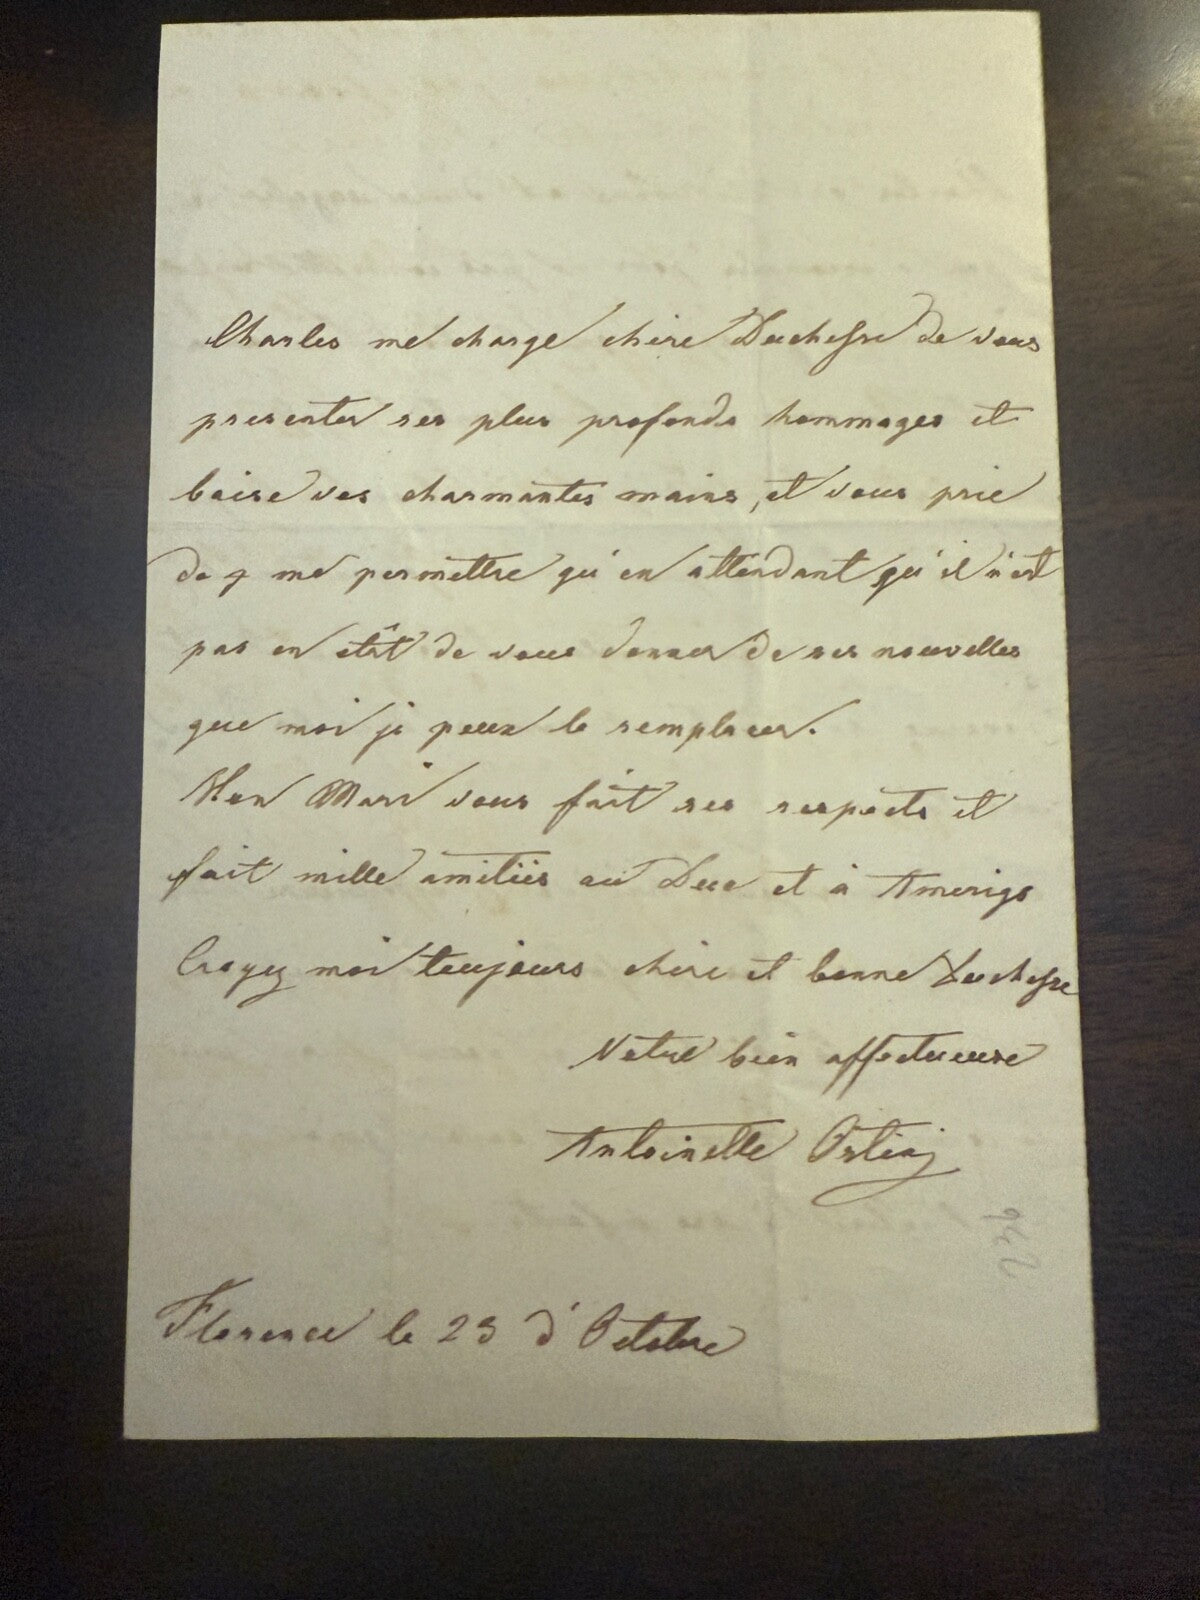 Charles me charge chère Duchesse de vous
presenter ses plus profonds hommages et
baise vos charmantes mains, et vous prie
de me permettre qu'en attendant qu'il n'est
pas en êtât de vous donner de ses nouvelles
que moi je peux le remplacer.
Mon Mari vous fait ses respects et
fait mille amitiés au Duc et à Amerigo
Croyez moi toujours chère et bonne Duchesse
Votre bien affectueuse
Antoinette
Florence le 23 d'Octobre